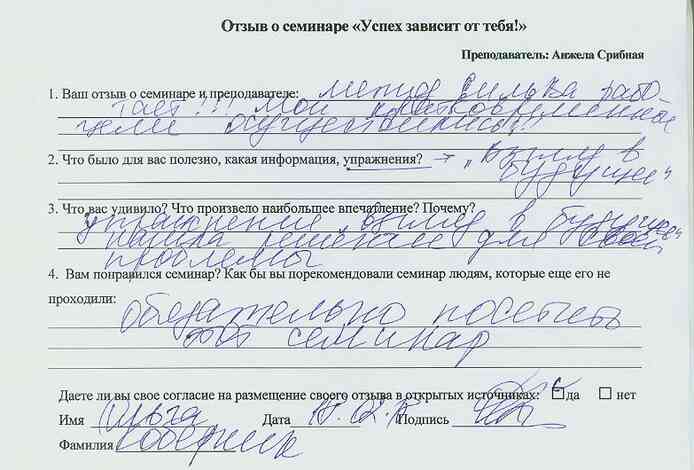 Отзыв о семинаре «Успех зависит от тебя!»
Преподаватель: Анжела Срибная
1. Ваш отзыв о семинаре и преподавателе: метод Сильва рабо-
тает!!! Мои кратковременные
цели осуществились!!!
2. Что было для вас полезно, какая информация, упражнения? → „Взгляд в
будущее"
3. Что вас удивило? Что произвело наибольшее впечатление? Почему?
упражнение „взгляд в будущее"
нашла решение для своей
проблемы
4. Вам понравился семинар? Как бы вы порекомендовали семинар людям, которые еще его не
проходили:
обязательно посетить
этот семинар
Даете ли вы свое согласие на размещение своего отзыва в открытых источниках: да нет
Имя Ольга Дата Подпись
Фамилия